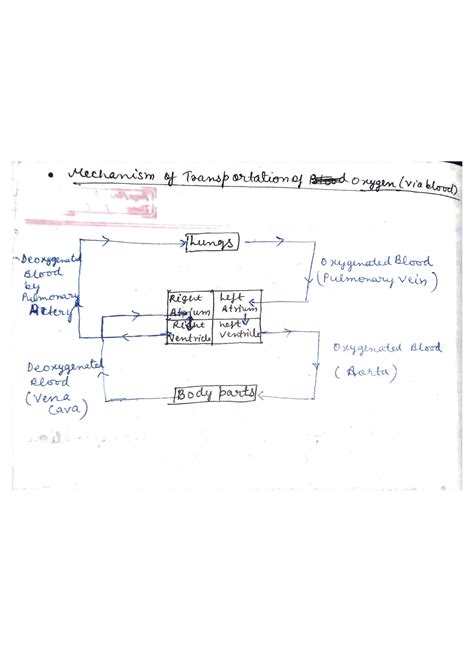 • Mechanism of Transportation of Blood Oxygen (via blood)
Lungs
Deoxygenated
Blood
by
Pulmonary
Artery
Oxygenated Blood
(Pulmonary Vein)
Right
Atrium
Left
Atrium
Right
Ventricle
Left
Ventricle
Oxygenated Blood
(Aorta)
Deoxygenated
Blood
(Vena
Cava)
Body parts